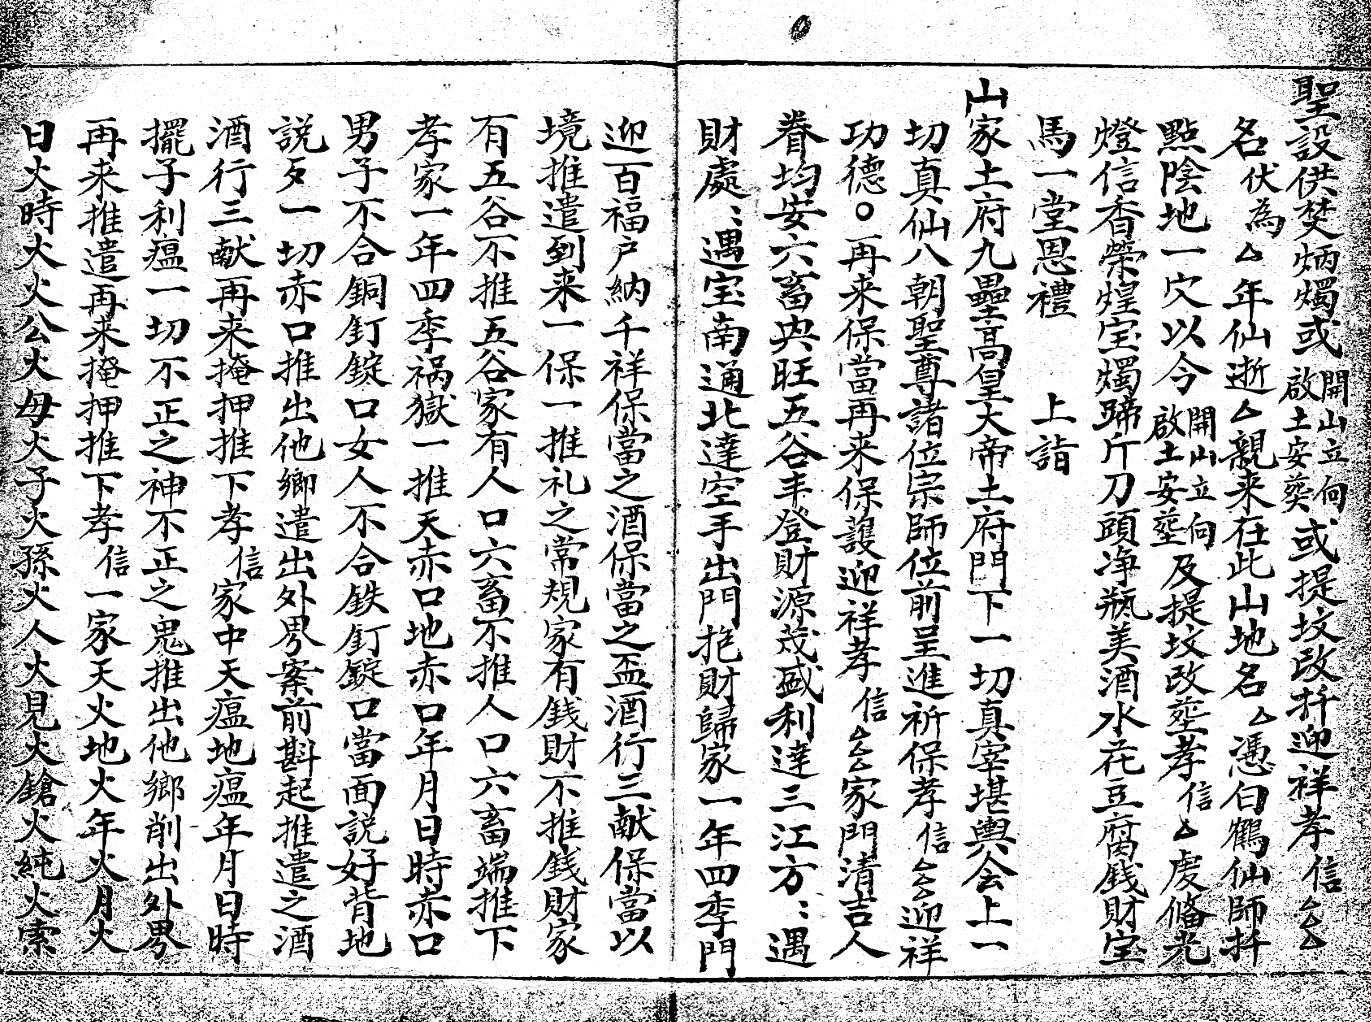 聖設供焚炳燭或開山立向啟土安葬或提坟改扦迎祥孝信厶厶
名伏為厶年仙逝厶親来在此山地名厶憑白鶴仙師扦
點陰地一穴以今開山立向啟土安塟及提坟改塟孝信厶虔俻光
燈信香榮煌宝燭蹄斤刀頭净瓶美酒水花豆腐銭財宝
馬一堂恩禮 上詣
山家土府九壘高皇大帝土府門下一切真宰堪輿会上一
切真仙八朝聖尊諸位宗師位前呈進祈保孝信厶厶迎祥
功德○再来保當再来保護迎祥孝信厶厶家門清吉人
眷均安六畜央旺五谷丰登財源茂盛利達三江方〻遇
財處〻遇宝南通北達空手出門抱財歸家一年四季門
迎百福户納千祥保當之酒保當之盃酒行三献保當以
境推遣到来一保一推礼之常規家有銭財不推銭財家
有五谷不推五谷家有人口六畜不推人口六畜端推下
孝家一年四季禍獄一推天赤口地赤口年月日時赤口
男子不合銅釘錠口女人不合鉄釘錠口當面説好背地
説歹一切赤口推出他鄉遣出外界案前斟起推遣之酒
酒行三献再来掩押推下孝信家中天瘟地瘟年月日時
擺子利瘟一切不正之神不正之鬼推出他鄉削出外界
再来推遣再来掩押推下孝信一家天火地火年火月火
日火時火火公火母火子火孫火人火見火鎗火純火索